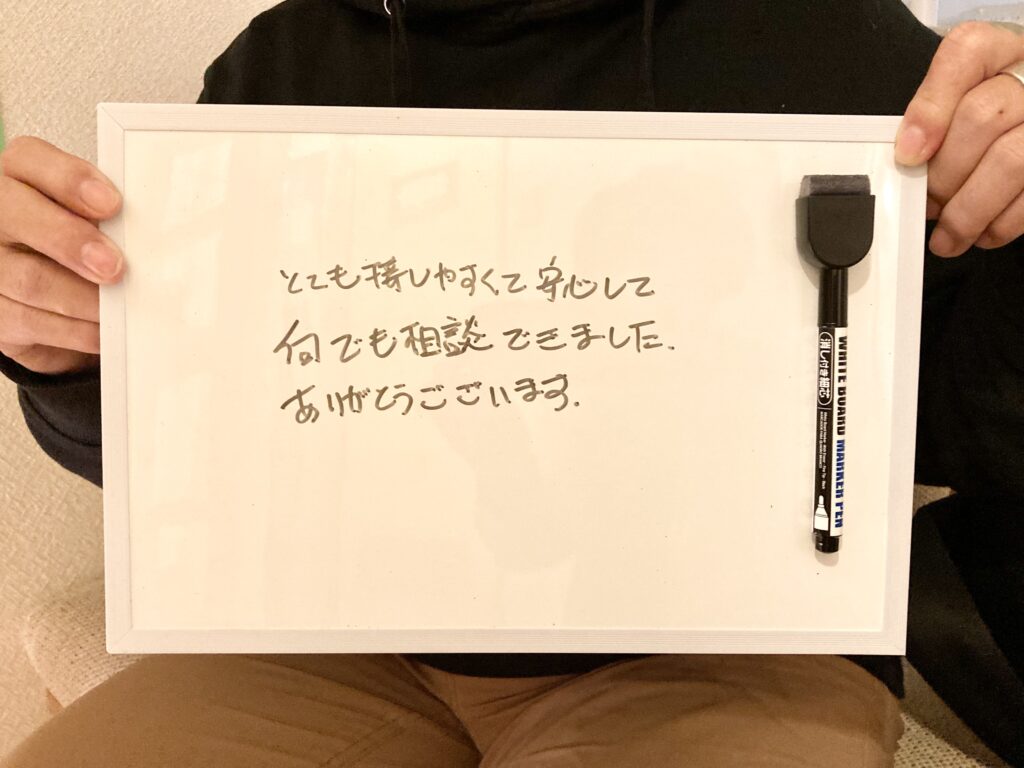 とても接しやすくて安心して
何でも相談できました.
ありがとうございます.
WHITE BOARD MARKER PEN